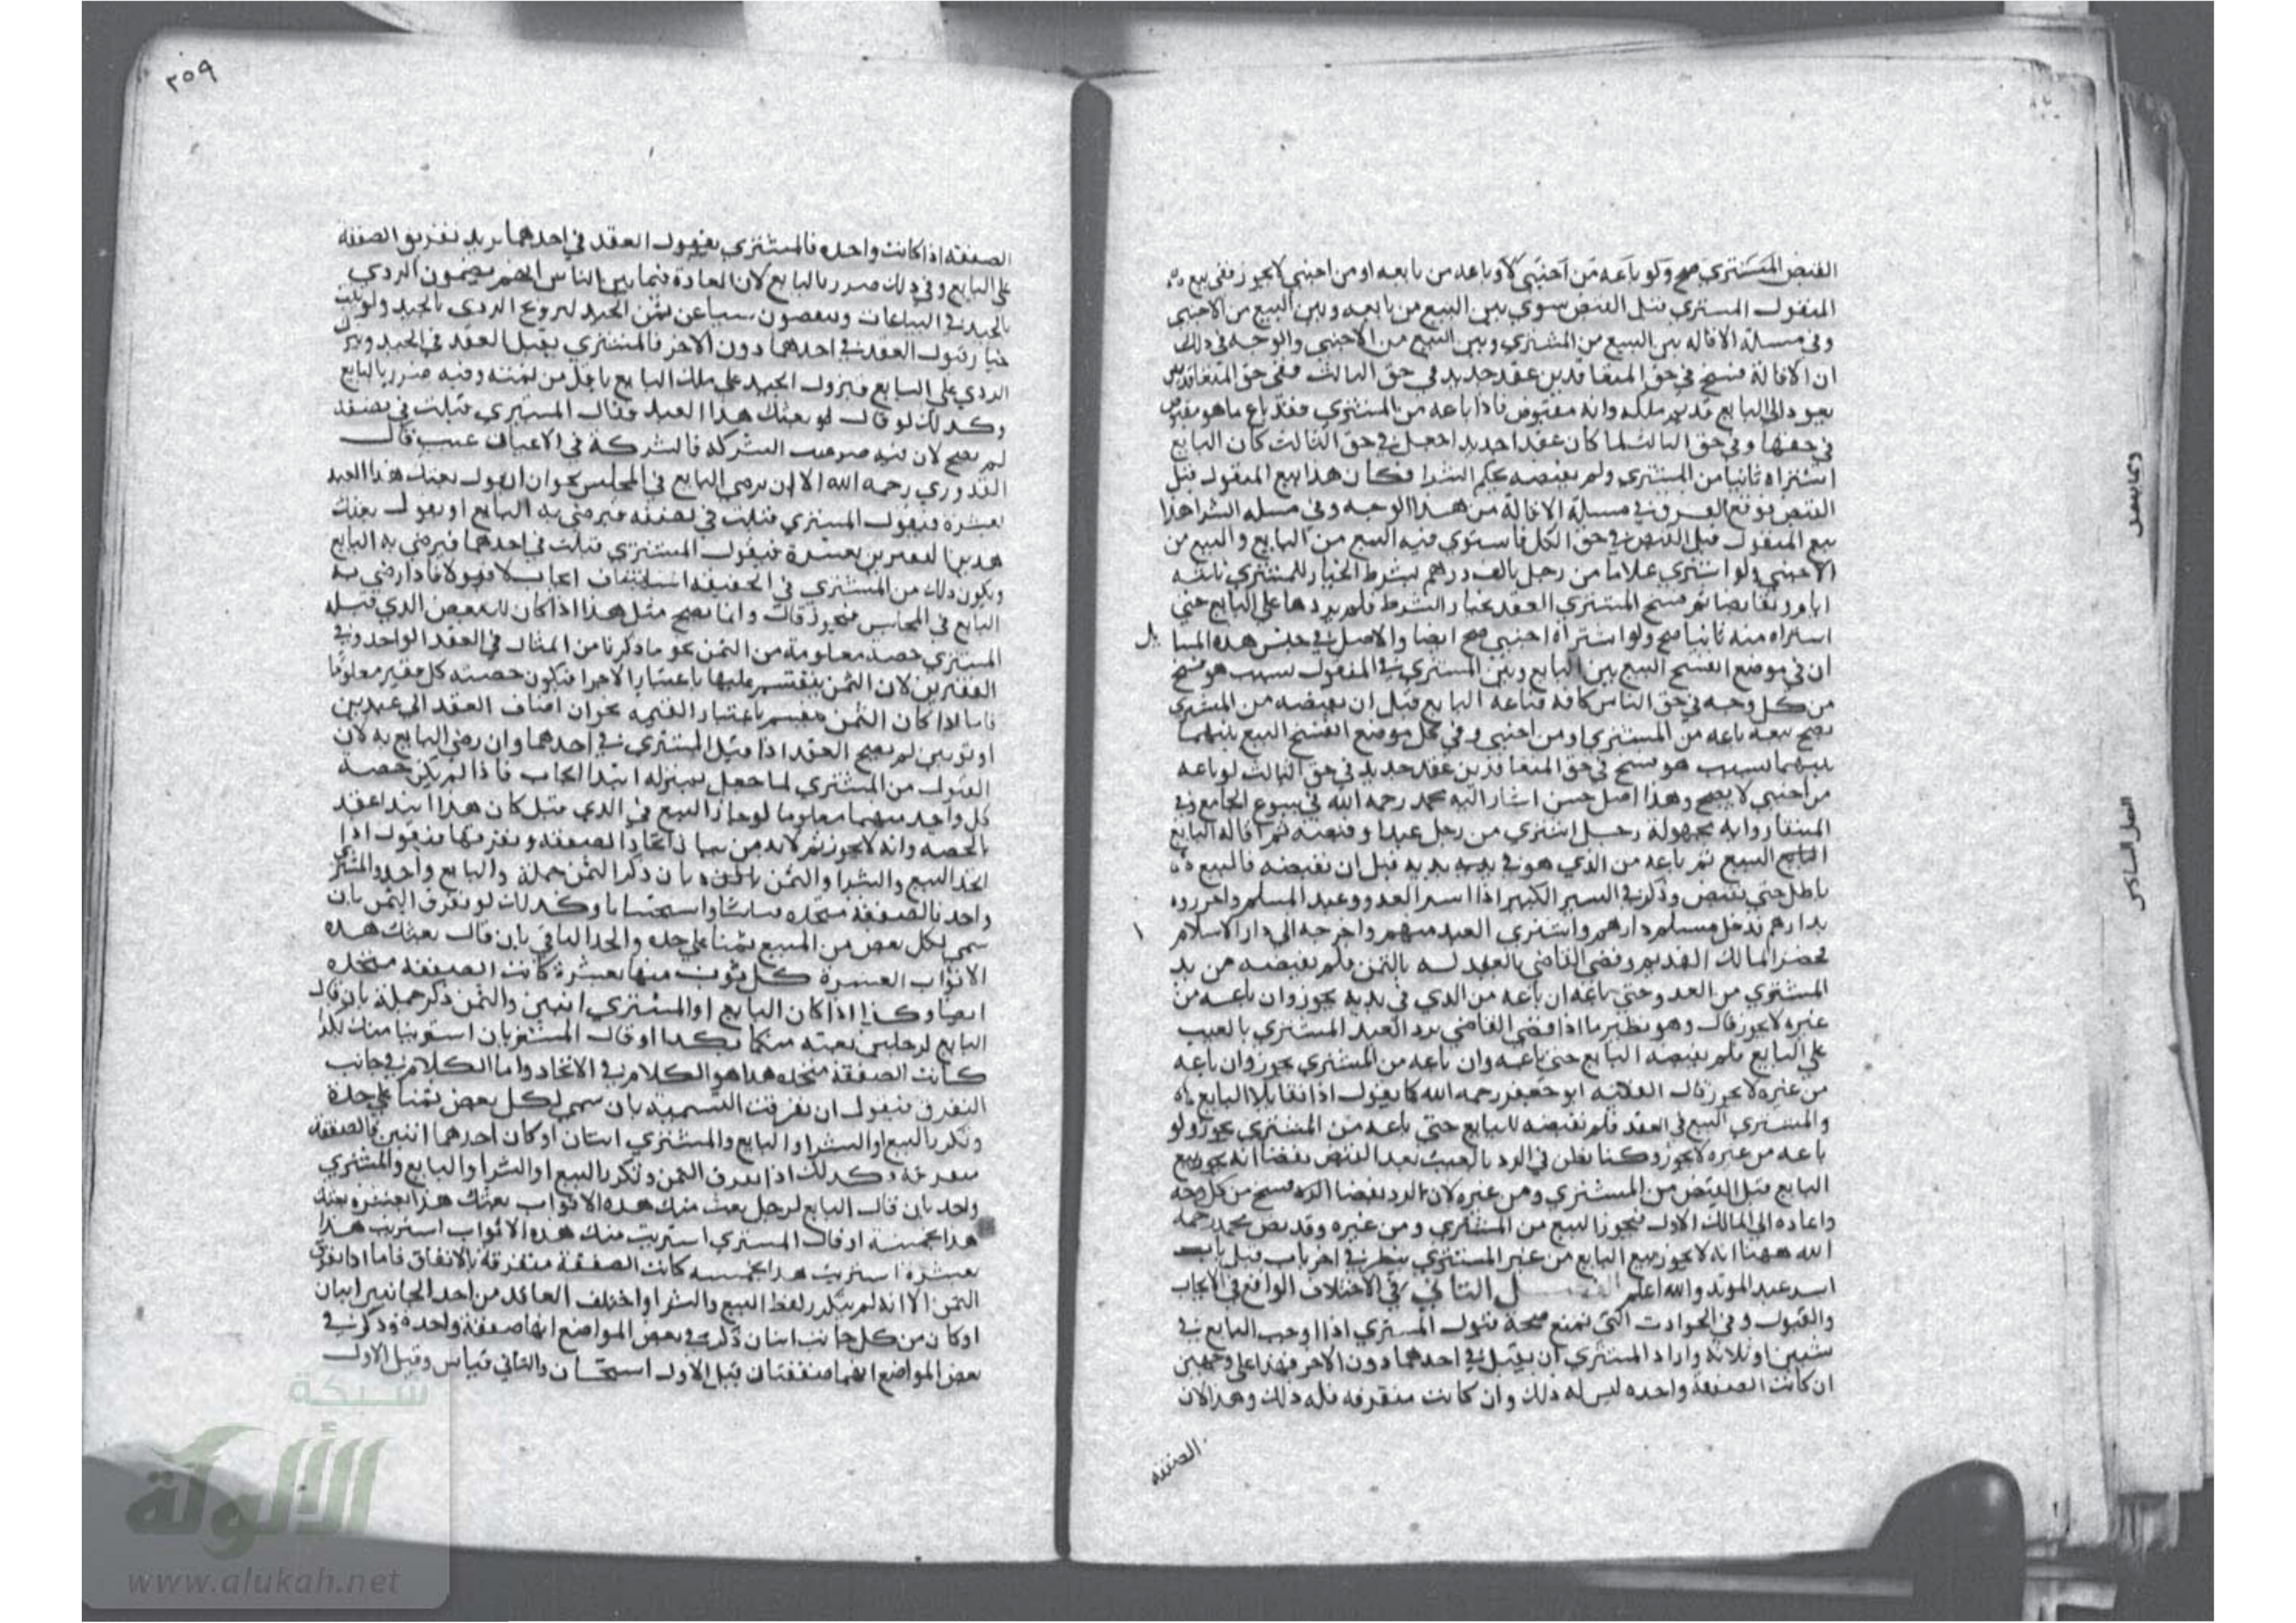 القبض المشتري صح ولو باعه من اجنبي لا وباعه من بايعه او من اجنبي لا يجوز ففي بيع
المنقول المشتري قبل القبض سوي بين البيع من بايعه وبين البيع من الاجنبي
وفي مسئلة الاقالة بين البيع من المشتري وبين البيع من الاجنبي والوجه في ذلك
ان الاقالة فسخ في حق المتعاقدين عقد جديد في حق الثالث ففي حق المتعاقدين
يعود الى البايع قديم ملكه وانه مقبوض فاذا باعه من المشتري فقد باع ما هو مقبوض
في حقها وفي حق الثالث لما كان عقدا جديدا جعل في حق الثالث كان البايع
اشتراه ثانيا من المشتري ولم يقبضه بحكم الشرا فكان هذا بيع المنقول قبل
القبض فوقع الفرق في مسئلة الاقالة من هذا الوجه وفي مسله الشرا هذا
بيع المنقول قبل القبض في حق الكل فاستوي فيه البيع من البايع والبيع من
الاجنبي ولو اشتري غلاما من رجل بالف درهم بشرط الخيار للمشتري ثلثه
ايام وتقابضا ثم فسخ المشتري العقد بخيار الشرط فلم يردها على البايع حتي
اشتراه منه ثانيا صح ولو اشتراه اجنبي صح ايضا والاصل في جنس هذه المسا يل
ان في موضع انفسخ البيع بين البايع وبين المشتري في المنقول بسبب هو فسخ
من كل وجه في حق الناس كافة فباعه البايع قبل ان يقبضه من المشتري
يصح بيعه باعه من المشتري او من اجنبي وفي كل موضع انفسخ البيع بينهما
بينهما بسبب هو فسخ في حق المتعاقدين عقد جديد في حق الثالث لو باعه
من اجنبي لا يصح وهذا اصل حسن اشار اليه محمد رحمه الله في بيوع الجامع وفي
المنتقا رواية مجهولة رجل اشتري من رجل عبدا وقبضه ثم اقاله البايع
البايع البيع ثم باعه من الذي هو في يديه قبل ان يقبضه فالبيع
باطل حتى يقبض وذكر في السير الكبير اذا اسر العدو عبد المسلم واحرزوه
بدارهم فدخل مسلم دارهم واشتري العبد منهم واخرجه الى دار الاسلام
فحضر المالك القديم وقضى القاضي بالعبد له بالثمن فلم يقبضه من يد
المشتري من العدو حتى باعه ان باعه من الذي في يديه يجوز وان باعه من
غيره لا يجوز قال وهو نظير ما اذا قضى القاضي برد العبد المشتري بالعيب
على البايع فلم يقبضه البايع حتى باعه وان باعه من المشتري يجوز وان باعه
من غيره لا يجوز قال الفقيه ابو جعفر رحمه الله كنا يقول اذا تقايلا البايع
والمشتري البيع في العقد فلم يقبضه البايع حتى باعه من المشتري يجوز ولو
باعه من غيره لا يجوز وكنا نظن في الرد بالعيب بعد القبض بقضا انه يجوز بيع
البايع قبل القبض من المشتري ومن غيره لان الرد بقضا الرد فسخ من كل وجه
واعاده الى المالك الاول فيجوز البيع من المشتري ومن غيره وقد نص محمد رحمه
الله ههنا انه لا يجوز بيع البايع من غير المشتري ينظر في اخر باب قبل باب
اسر عبد المرتد والله اعلم الفصل الثاني في الاختلاف الواقع في الايجاب
والقبول وفي الحوادث التي تمنع صحة قبول المشتري اذا اوجب البايع في
شيين او ثلاثة واراد المشتري ان يقبل في احدهما دون الاخر فهذا على وجهين
ان كانت الصفقة واحده ليس له ذلك وان كانت متفرقه فله ذلك وهذا لان
الصفقه
٢٥٩
الصفقه اذا كانت واحده فالمشتري بقبول العقد في احدهما يريد تفريق الصفقة
على البايع وفي ذلك ضرر بالبايع لان العادة فيما بين الناس انهم يضمون الردي
بالجيد في البياعات وينقصون شيا عن ثمن الجيد لترويج الردي بالجيد ولو ثبت
خيار قبول العقد في احدهما دون الاخر فالمشتري يقبل العقد في الجيد ويترك
الردي على البايع فيزول الجيد على ملك البايع باقل من ثمنه وفيه ضرر بالبايع
وكذلك لو قال لو بعتك هذا العبد فقال المشتري قبلت في نصفه
لم يصح لان فيه ضرر عيب الشركة فالشركة في الاعيان عيب قال
القدوري رحمه الله الا ان يرضى البايع في المجلس نحو ان يقول بعتك هذا العبد
بعشرة فيقول المشتري قبلت في نصفه فيرضى به البايع او يقول بعتك
هذين القفيزين بعشرة فيقول المشتري قبلت في احدهما فيرضى به البايع
ويكون ذلك من المشتري في الحقيقة استيناف ايجاب لا قبولا فاذا رضى به
البايع في المجلس فيجوز قال وانما يصح مثل هذا اذا كان للبعض الذي قبله
المشتري حصة معلومة من الثمن نحو ما ذكرنا من المثال في العقد الواحد وفي
القفيزين لان الثمن ينقسم عليها باعتبار الاجزا فتكون حصة كل قفيز معلوما
فاما اذا كان الثمن منقسم باعتبار القيمة نحو ان اضاف العقد الى عبدين
او ثوبين لم يصح العقد اذا قبل المشتري في احدهما وان رضي البايع به لان
القبول من المشتري لما جعل بمنزلة ابتدا ايجاب فاذا لم يكن حصة
كل واحد منهما معلوما لو جاز البيع في الذي قبل كان هذا ابتدا عقد
بالحصه وانه لا يجوز ثم لا بد من بيان اتحاد الصفقة وتفرقها فنقول اذا
اتحد البيع والشرا والثمن بان ذكر الثمن جملة والبايع واحد والمشتري
واحد فالصفقة متحده قياسا واستحسانا وكذلك لو تفرق الثمن بان
سمى لكل بعض من المبيع ثمنا على حده واتحد الباقي بان قال بعتك هذه
الاثواب العشرة كل ثوب منها بعشرة كانت الصفقة متحده
ايضا وكذا اذا كان البايع او المشتري اثنين والثمن ذكر جملة بان قال
البايع لرجلين بعته منكما بكذا او قال المشتريان اشترينا منك بكذا
كانت الصفقة متحده هذا هو الكلام في الاتحاد واما الكلام في جانب
التفرق فنقول ان تفرقت التسمية بان سمى لكل بعض ثمنا على حدة
وتكرر البيع او الشرا والبايع والمشتري اثنان او كان احدهما اثنين فالصفقة
متفرقة وكذلك اذا تفرق الثمن وتكرر البيع او الشرا والبايع والمشتري
واحد بان قال البايع لرجل بعت منك هذه الاثواب بعتك هذا بعشرة بعتك
هذا بخمسة او قال المشتري اشتريت منك هذه الاثواب اشتريت هذا
بعشرة اشتريت هذا بخمسه كانت الصفقة متفرقة بالاتفاق فاما اذا تفرق
الثمن الا انه لم يتكرر لفظ البيع والشرا واختلف العاقد من احد الجانبين اثنان
او كان من كل جانب اثنان ذكر في بعض المواضع انها صفقة واحدة وذكر في
بعض المواضع انهما صفقتان قيل الاول استحسان والثاني قياس وقيل الاول
شبكة
الألوكة
www.alukah.net